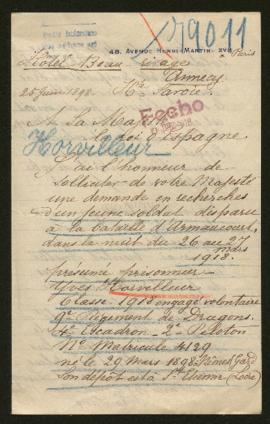 19011
48, AVENUE HENRI-MARTIN. XVI
Paris
Hotel Beau rivage
Annecy
25 Juin 1918.
Hte Savoie
Fecho
A Sa Majesté
le roi d'Espagne.
Horvilleur
J'ai l'honneur de
solliciter de votre Majesté
une demande en recherches
d'un jeune soldat disparu
à la bataille d'Armancourt,
dans la nuit du 26 au 27
mars
1918.
présumé prisonnier
Yves Horvilleur
Classe 1918 engagé volontaire
9e Régiment de Dragons.
4e Escadron - 2e Peloton
No Matricule 4129
né le 29 Mars 1898 Nîmes Gard
Son dépôt est à St Etienne (Loire)